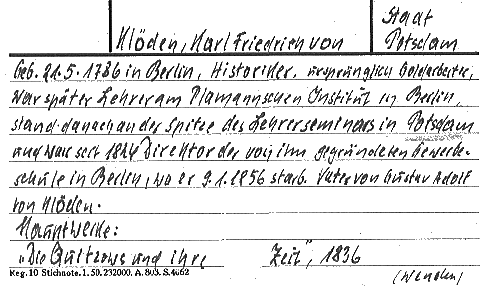 Staat
Klöden, Karl Friedrich von
Potsdam
Geb. 21.5.1786 in Berlin, Historiker, ursprünglich Goldarbeiter,
war später Lehrer am Plamannschen Institut in Berlin,
stand danach an der Spitze des Lehrerseminars in Potsdam
und war seit 1824 Direktor der von ihm gegründeten Gewerbe-
schule in Berlin, wo er 9.1.1856 starb. Vater von Gustav Adolf
von Klöden.
Hauptwerke:
"Die Quitzows und ihre Zeit", 1836
Reg. 10 Stichnote. 1. 50. 232000. A. 803. S. 4662
(wenden)